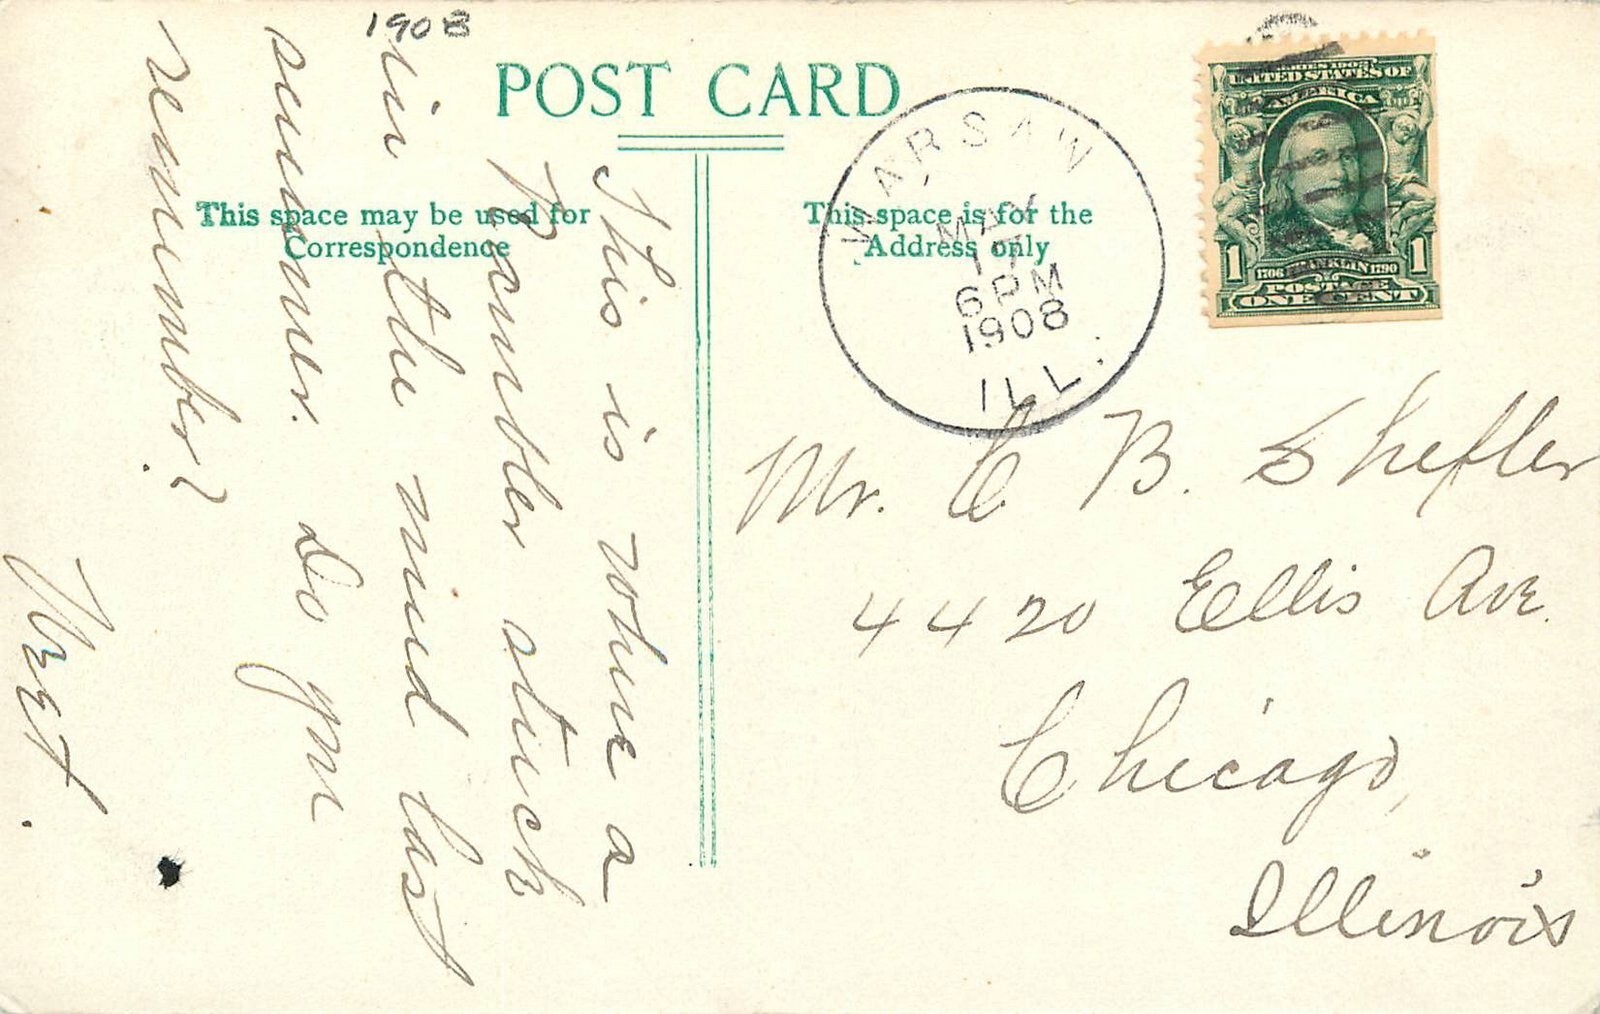 1908
POST CARD
This space may be used for
Correspondence
This space is for the
Address only
WARSAW
MAY
17
6 PM
1908
ILL.
SERIES 1902
UNITED STATES OF
AMERICA
1 1
1706 FRANKLIN 1790
POSTAGE
ONE CENT
This is where a
Rambler stuck
in the mud last
summer. Do you
remember?
Mr. C B. Shefler
4420 Ellis Ave.
Chicago,
Illinois